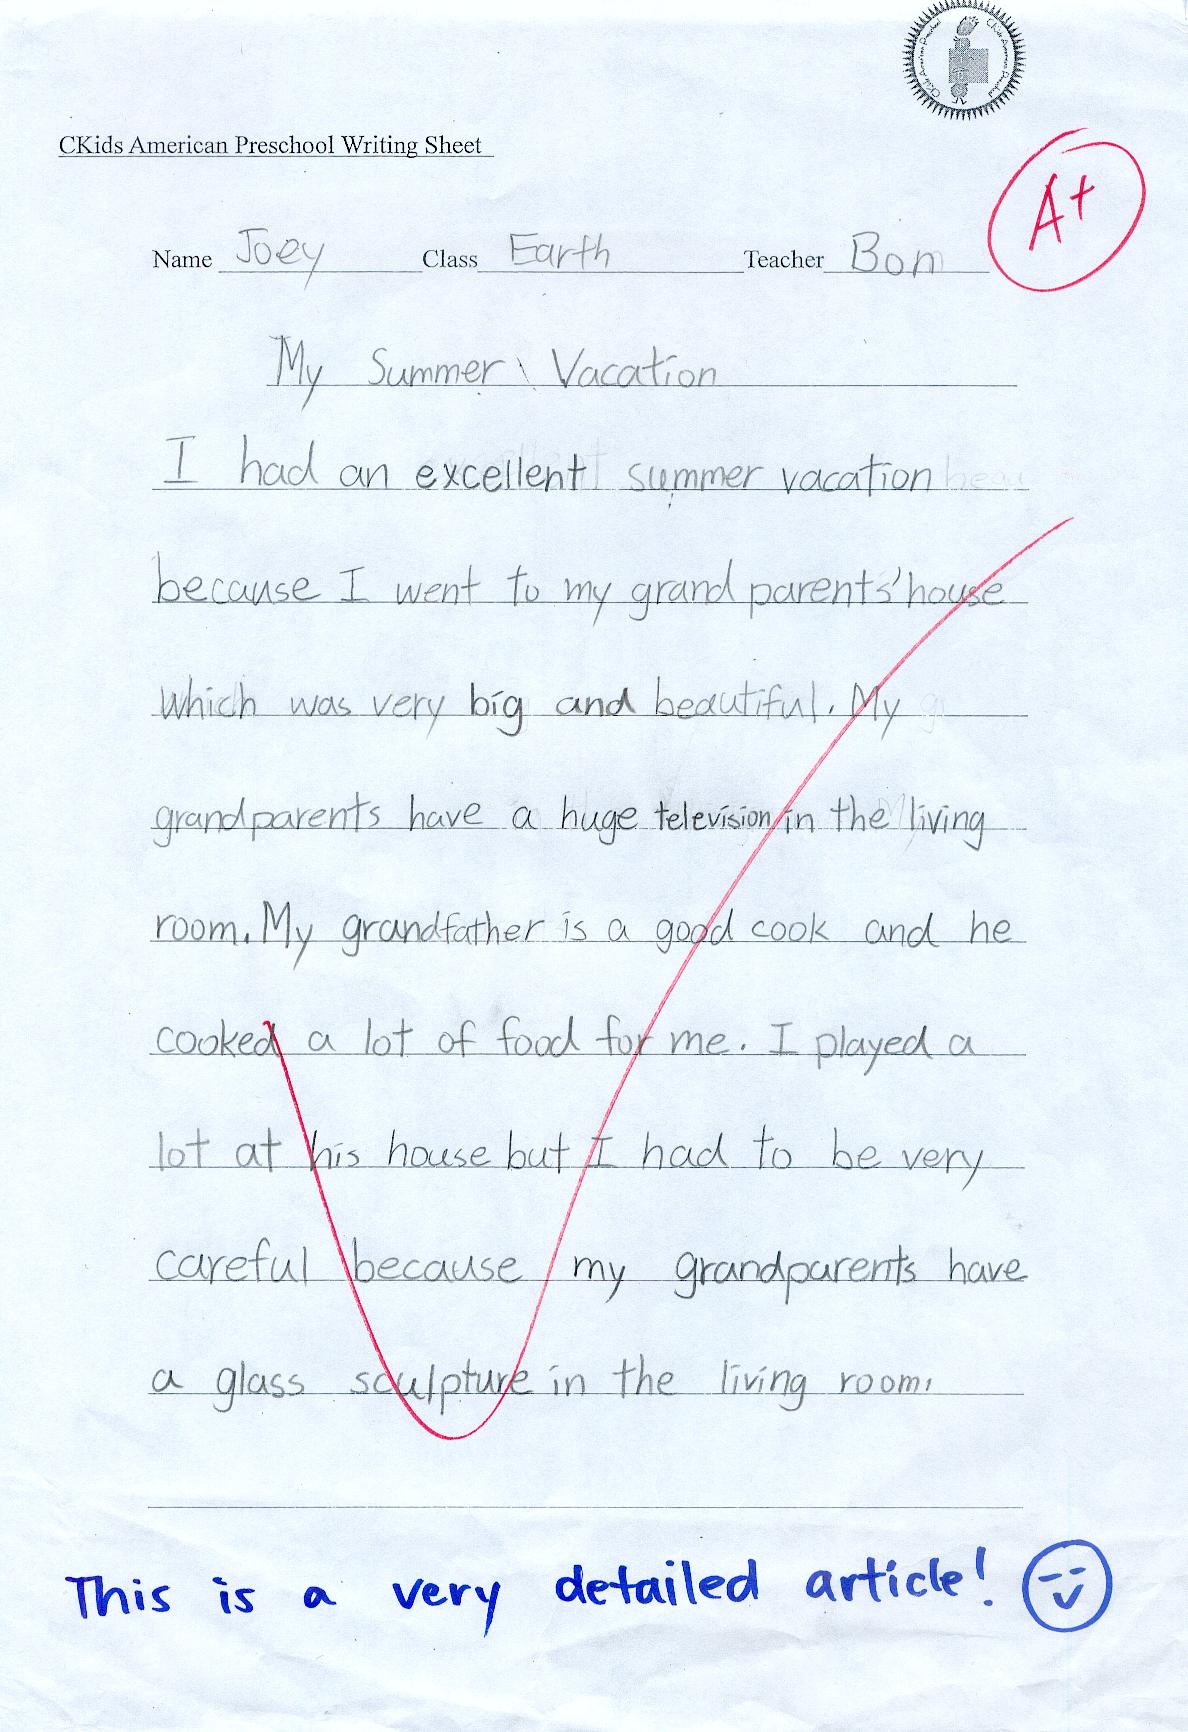 CKids American Preschool Writing Sheet
A+
Name Joey Class Earth Teacher Bon
My Summer Vacation
I had an excellent summer vacation
because I went to my grandparents' house
which was very big and beautiful. My
grandparents have a huge television in the living
room. My grandfather is a good cook and he
cooked a lot of food for me. I played a
lot at his house but I had to be very
careful because my grandparents have
a glass sculpture in the living room.
This is a very detailed article!